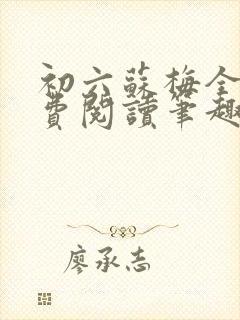 初六蘇梅全
費閱讀筆趣
廖承志